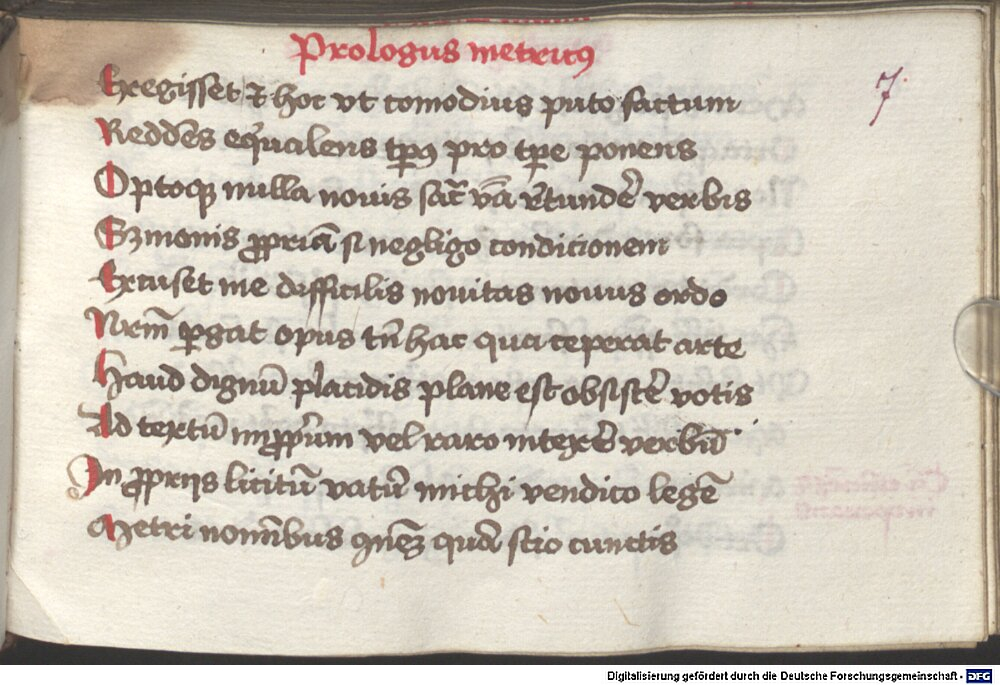 Prologus metricus
Exegisset et hoc vt comodius puto factum
Reddens equalens tps pro tpe ponens
Optoq nulla nouis sact vera retunder verbis
Sermonis propriam si negligo condicionem
Excuset me difficilis nouitas nouus ordo
Pergat opus tn hac qua ceperat arte
Haud dignu placidis plane est obsister votis
Ad textu impprium vel raro intexere verbu
In propriis licitu vatum michi vendico lege
Metri nominibus quod scio cunctis
7
Digitalisierung gefördert durch die Deutsche Forschungsgemeinschaft - DFG